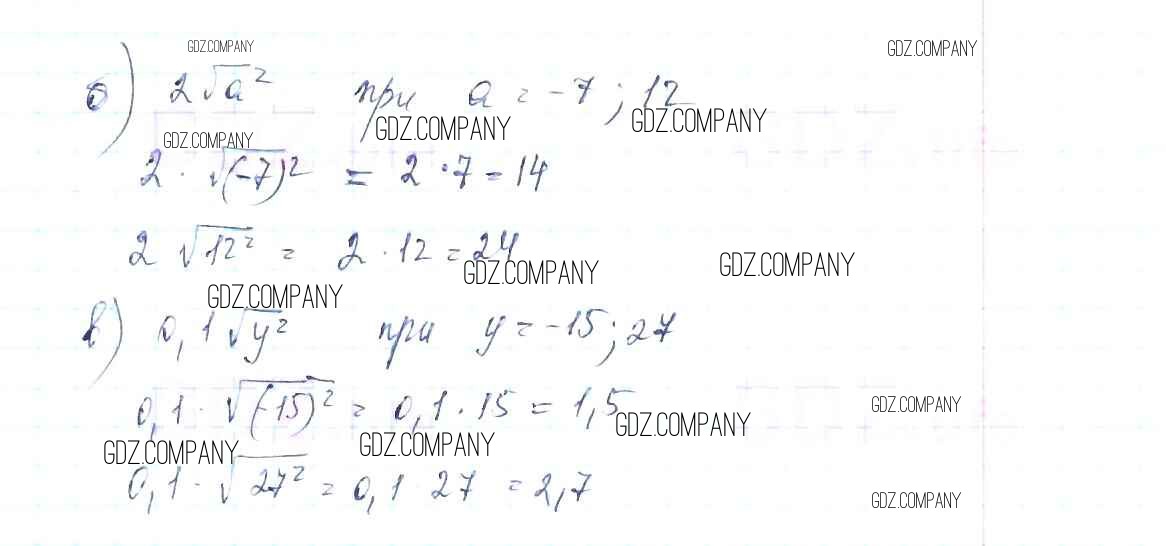 GDZ.COMPANY GDZ.COMPANY
б) 2√a² при a = -7; 12
GDZ.COMPANY GDZ.COMPANY GDZ.COMPANY
2 · √(-7)² = 2 · 7 = 14
2 √12² = 2 · 12 = 24
GDZ.COMPANY GDZ.COMPANY
GDZ.COMPANY
в) 0,1√y² при y = -15; 27
0,1 · √(-15)² = 0,1 · 15 = 1,5
GDZ.COMPANY GDZ.COMPANY
GDZ.COMPANY GDZ.COMPANY
0,1 · √27² = 0,1 · 27 = 2,7
GDZ.COMPANY